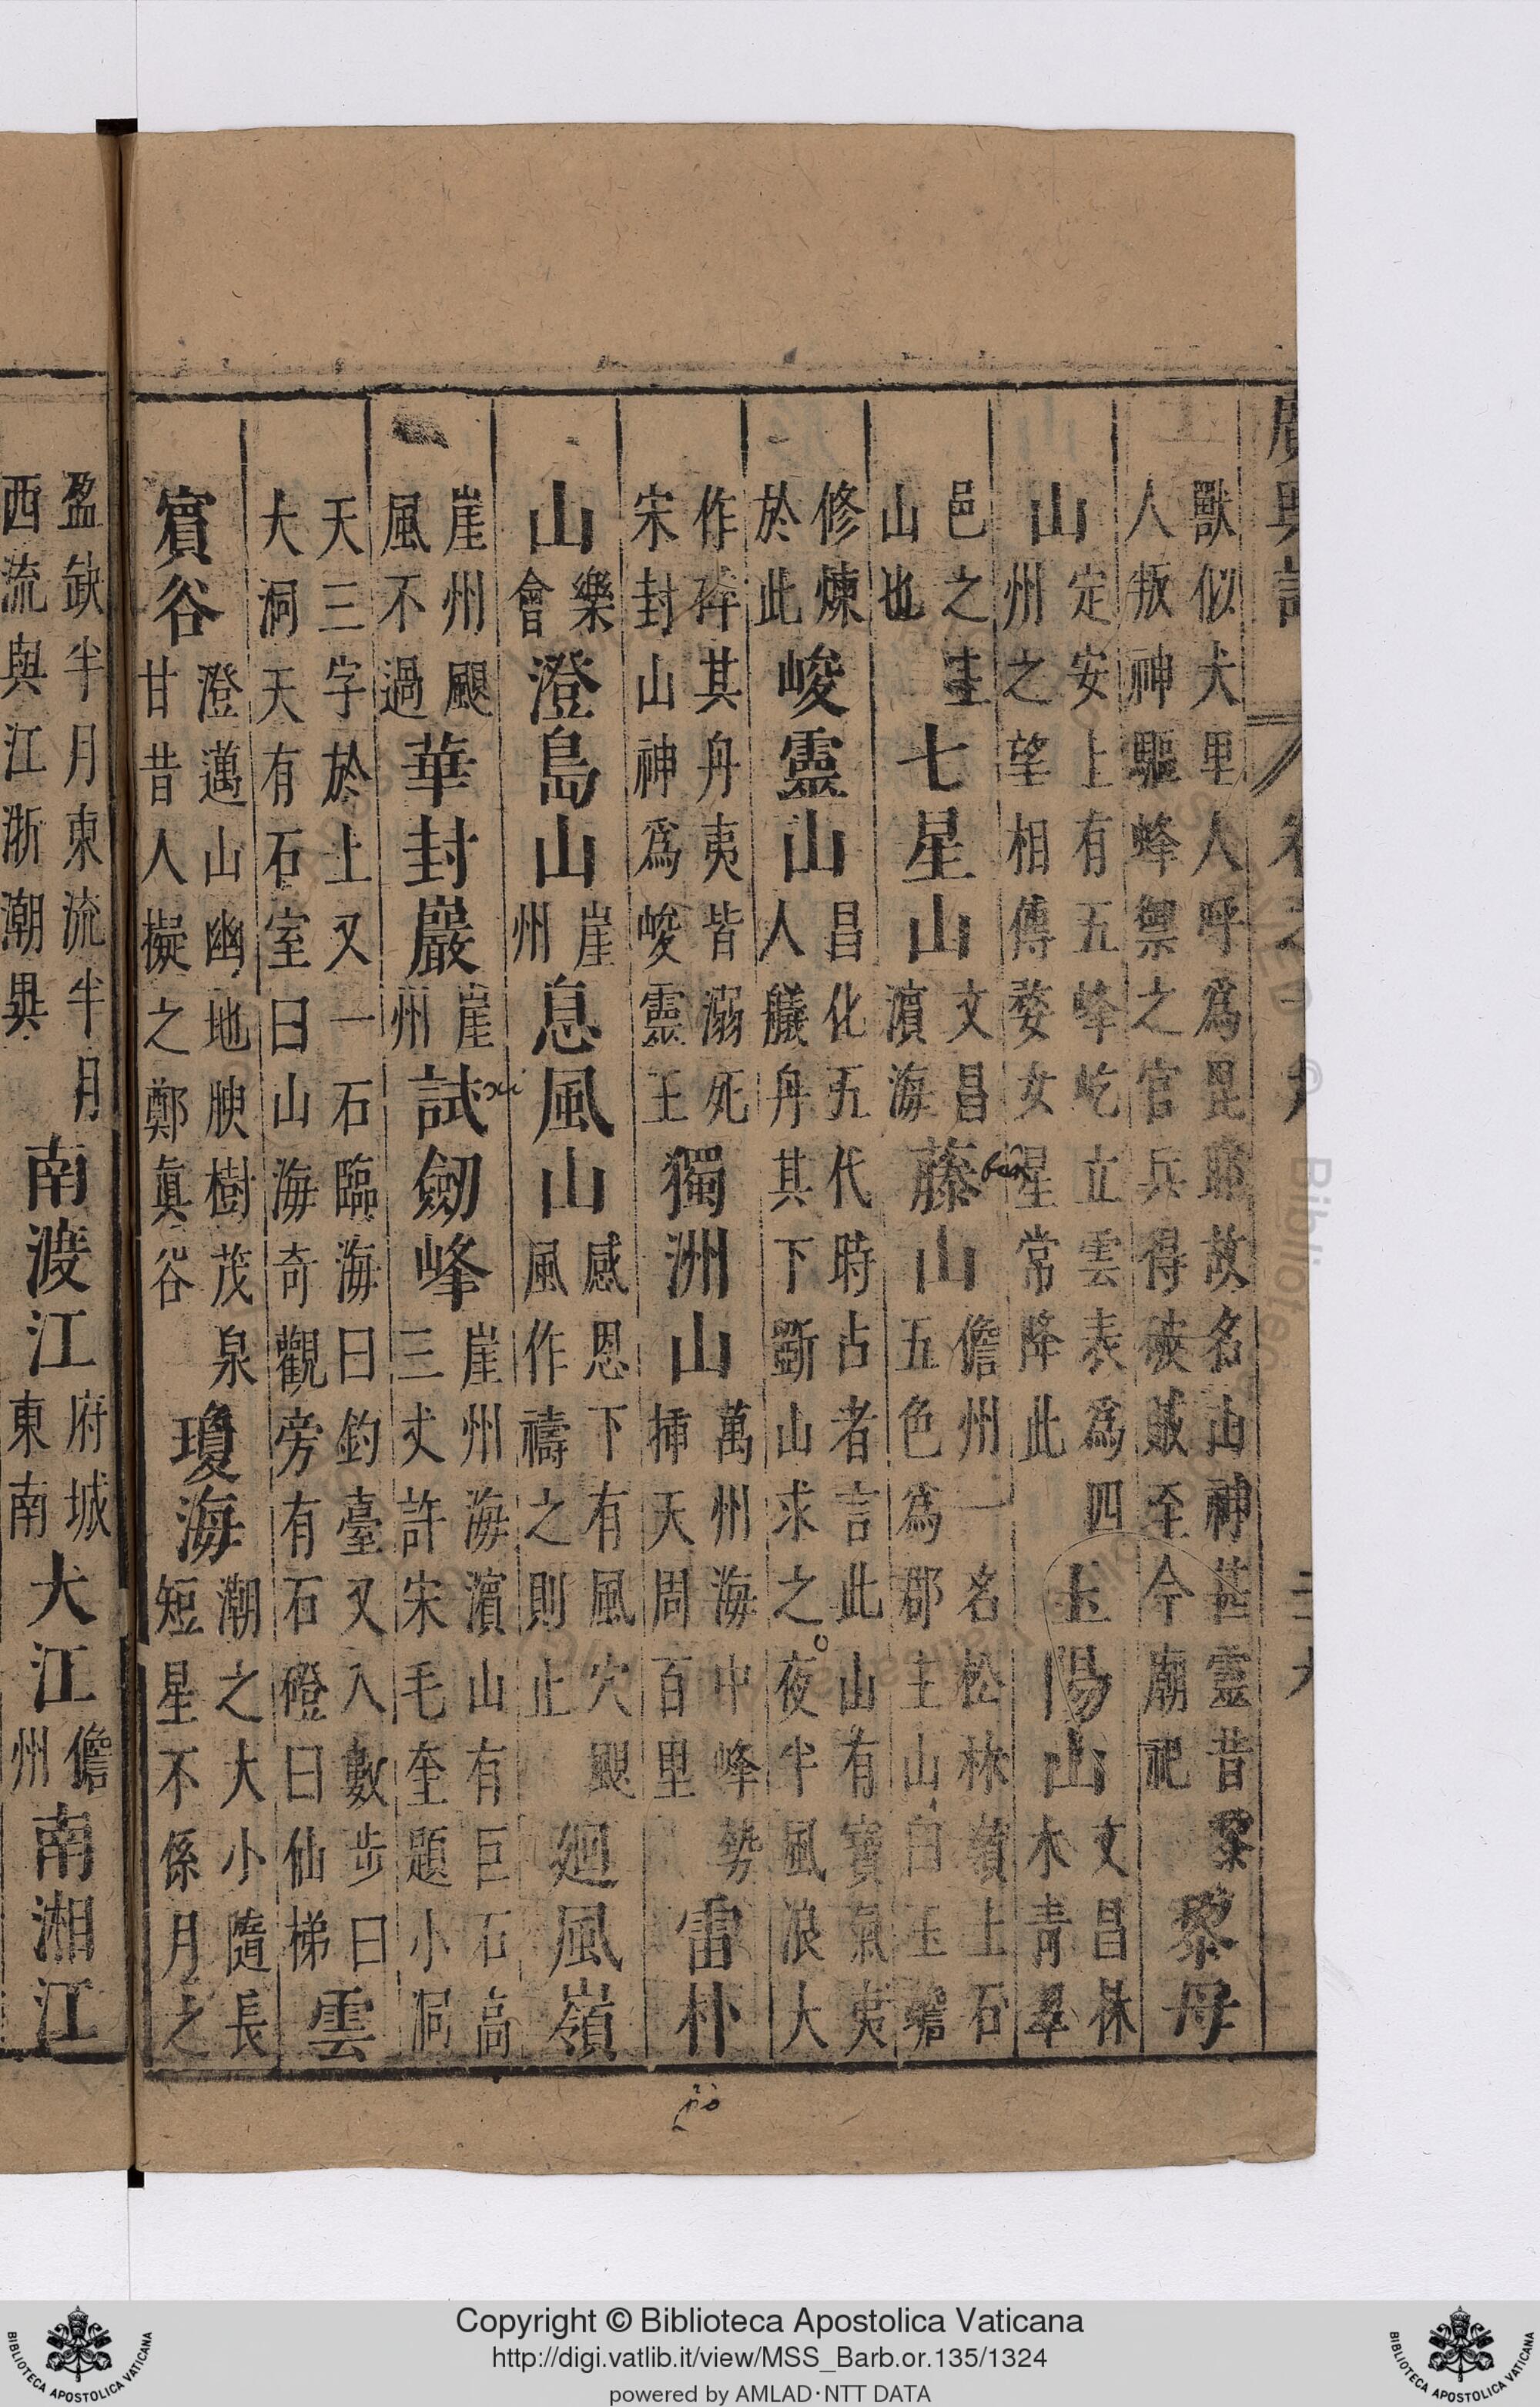 廣輿記
獸似犬里人呼爲毘耶故名山神甚靈昔黎
人叛神驅蜂禦之官兵得破賊至今廟祀
黎母
山
定安上有五峰屹立雲表爲四
州之望相傳婺女星常降此
玉陽山
文昌林
木青翠
邑之主
山也
七星山
文昌
濵海
藤山
儋州一名松林嶺上石
五色爲郡主山白玉蟾
修煉
於此
峻靈山
昌化五代時占者言此山有寳氣夷
人艤舟其下斵山求之夜半風浪大
作碎其舟夷皆溺死
宋封山神爲峻靈王
獨洲山
萬州海中峰勢
挿天周百里
雷朴
山
樂
會
澄島山
崖
州
息風山
感恩下有風穴颶
風作禱之則止
廻風嶺
崖州颶
風不過
華封巖
崖
州
試劒峰
崖州海濵山有巨石高
三丈許宋毛奎題小洞
天三字於上又一石臨海曰釣臺又入數步曰
大洞天有石室曰山海奇觀旁有石磴曰仙梯
雲
賔谷
澄邁山幽地腴樹茂泉
甘昔人擬之鄭眞谷
瓊海
潮之大小隨長
短星不係月之
盈缺半月東流半月
西流與江浙潮異
南渡江
府城
東南
大江
儋
州
南湘江
Copyright © Biblioteca Apostolica Vaticana
http://digi.vatlib.it/view/MSS_Barb.or.135/1324
powered by AMLAD·NTT DATA